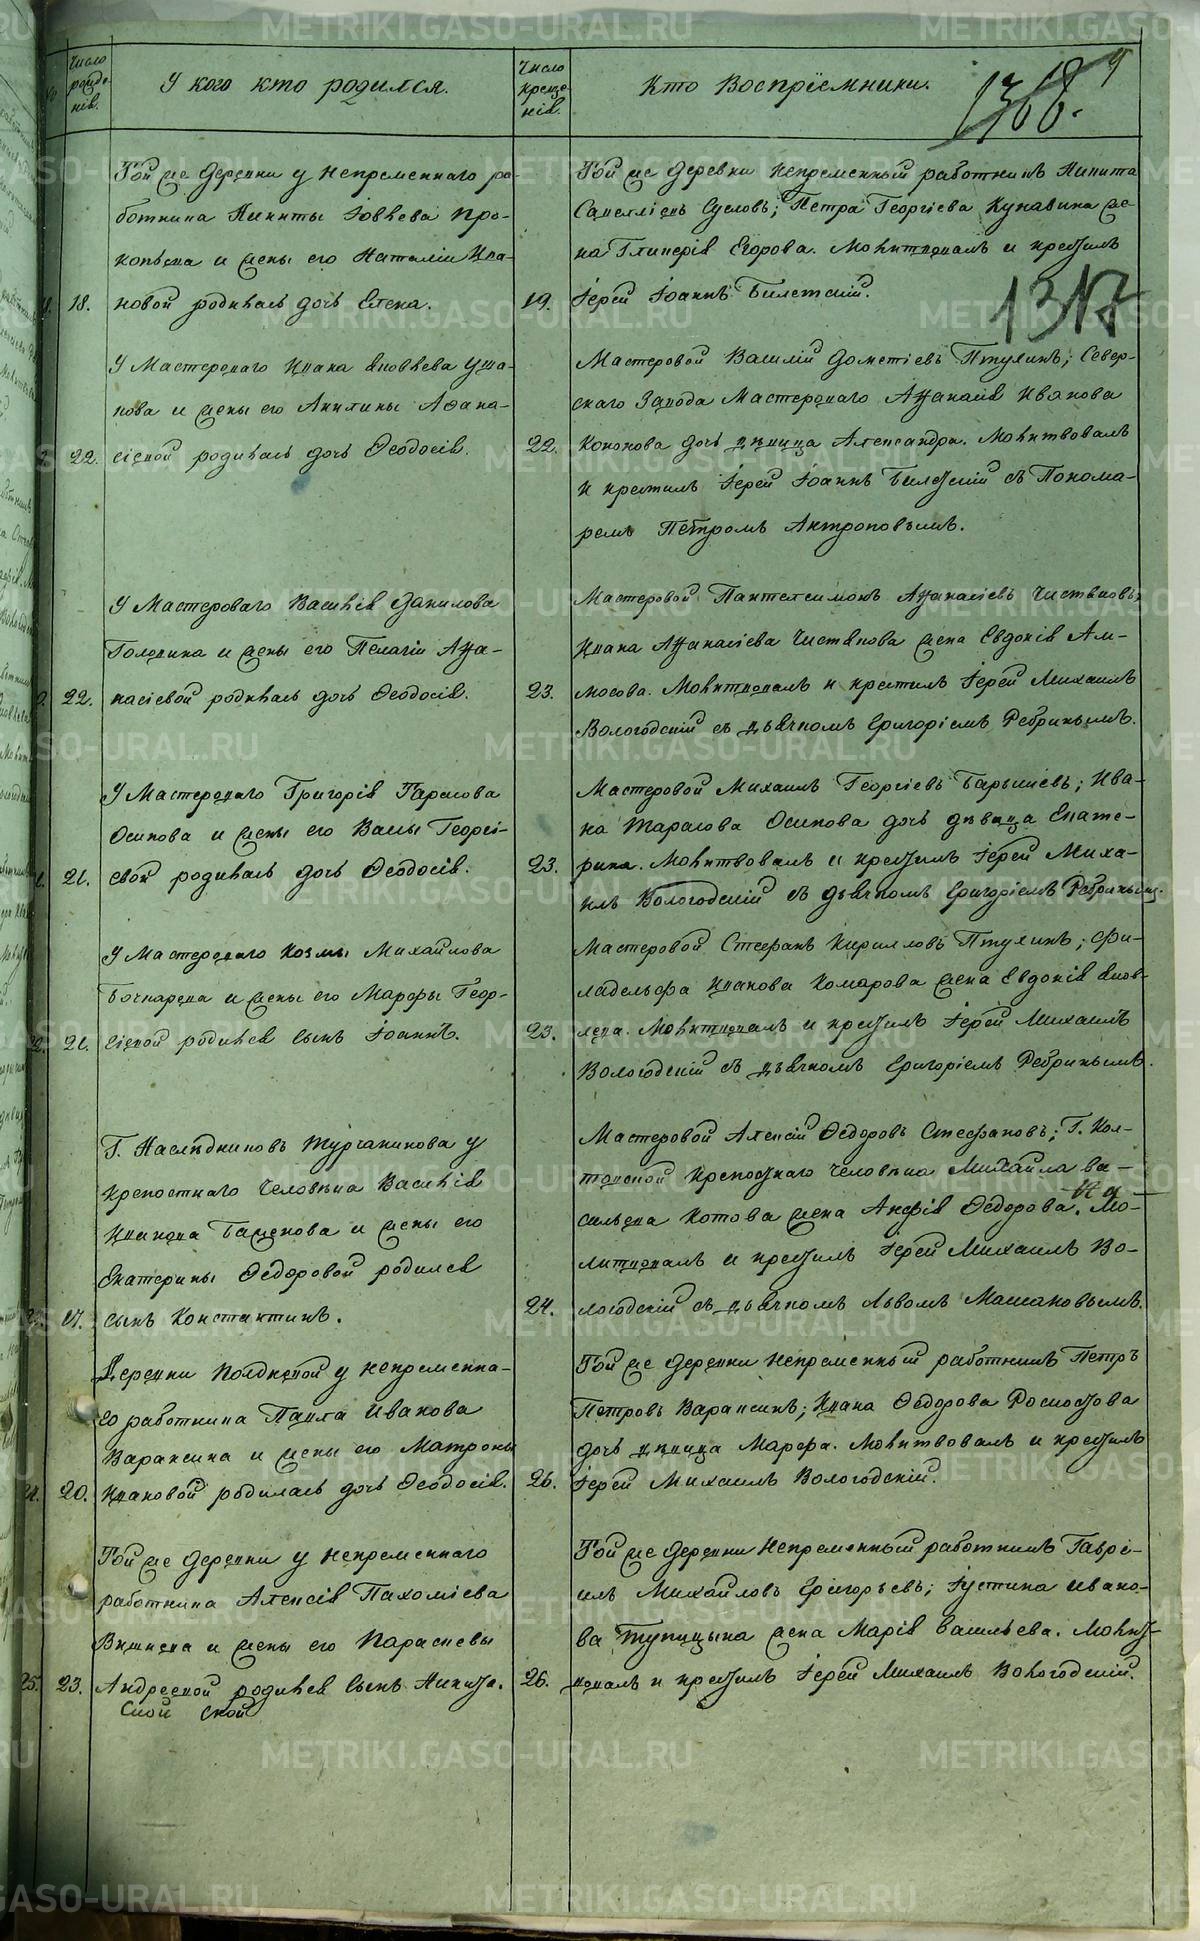 Число рожде-нія.
У кого кто родился.
Число креще-нія.
Кто Воспріемники.
1368.
1317
Той же деревни у непременнаго ра-
ботника Никиты Іовлева Про-
копьева и жены его Наталіи Ива-
18. новой родилась дочь Елена.
19.
Той же деревни непременный работникъ Никита
Савелліевъ Сусловъ; Петра Георгіева Кунавина же-
на Гликерія Егорова. Молитвовалъ и крестилъ
Іерей Іоаннъ Билетскій.
У Мастероваго Ивана Яковлева Уша-
кова и жены его Акилины Афана-
22. сіевой родилась дочь Ѳеодосія.
22.
Мастеровой Василій Дометіевъ Птухинъ; Север-
скаго Завода Мастероваго Афанасія Иванова
Кононова дочь девица Александра. Молитвовалъ
и крестилъ Іерей Іоаннъ Билетскій съ Понома-
ремъ Петромъ Антроповымъ.
У Мастероваго Василія Данилова
Голедина и жены его Пелагіи Афа-
22. насіевой родилась дочь Ѳеодосія.
23.
Мастеровой Пантелеимонъ Афанасіевъ Чистяковъ;
Ивана Афанасіева Чистякова жена Евдокія Ам-
мосова. Молитвовалъ и крестилъ Іерей Михаилъ
Вологодскій съ дьячкомъ Григоріемъ Ребринымъ.
У Мастероваго Григорія Тарасова
Осипова и жены его Вассы Георгі-
21. евой родилась дочь Ѳеодосія.
23.
Мастеровой Михаилъ Георгіевъ Барышевъ; Ива-
на Тарасова Осипова дочь девица Екате-
рина. Молитвовалъ и крестилъ Іерей Миха-
илъ Вологодскій съ дьячкомъ Григоріемъ Ребринымъ.
У Мастероваго Козмы Михайлова
Бочкарева и жены его Марфы Геор-
21. гіевой родился сынъ Іоаннъ.
23.
Мастеровой Стефанъ Кирилловъ Птухинъ; Фи-
ладельфа Иванова Комарова жена Евдокія Яков-
лева. Молитвовалъ и крестилъ Іерей Михаилъ
Вологодскій съ дьячкомъ Григоріемъ Ребринымъ.
Г. Наследниковъ Турчанинова у
крепостнаго человека Василія
Иванова Баженова и жены его
Екатерины Ѳедоровой родился
17. сынъ Константинъ.
24.
Мастеровой Алексій Ѳедоровъ Стефановъ; Г. Кол-
товской крепостнаго человека Михайла Ва-
сильева Котова жена Анфія Ѳедорова. Мо-
литвовалъ и крестилъ Іерей Михаилъ Во-
логодскій съ дьячкомъ Львомъ Машановымъ.
Деревни Полдневой у непременна-
го работника Павла Иванова
Вараксина и жены его Матроны
24. 20. Ивановой родилась дочь Ѳеодосія.
26.
Той же деревни непременный работникъ Петръ
Петровъ Вараксинъ; Ивана Ѳедорова
дочь девица Марфа. Молитвовалъ и крестилъ
Іерей Михаилъ Вологодскій.
Той же деревни у непременнаго
работника Алексія Пахоміева
Вшивцева и жены его Парасцевы
25. 23. Андреевой родился сынъ Никита.
26.
Той же деревни непременный работникъ Гаврі-
илъ Михайловъ Григорьевъ; Іустина Ивано-
ва Тупицына жена Марія Васильева. Молит-
вовалъ и крестилъ Іерей Михаилъ Вологодскій.
METRIKI.GASO-URAL.RU